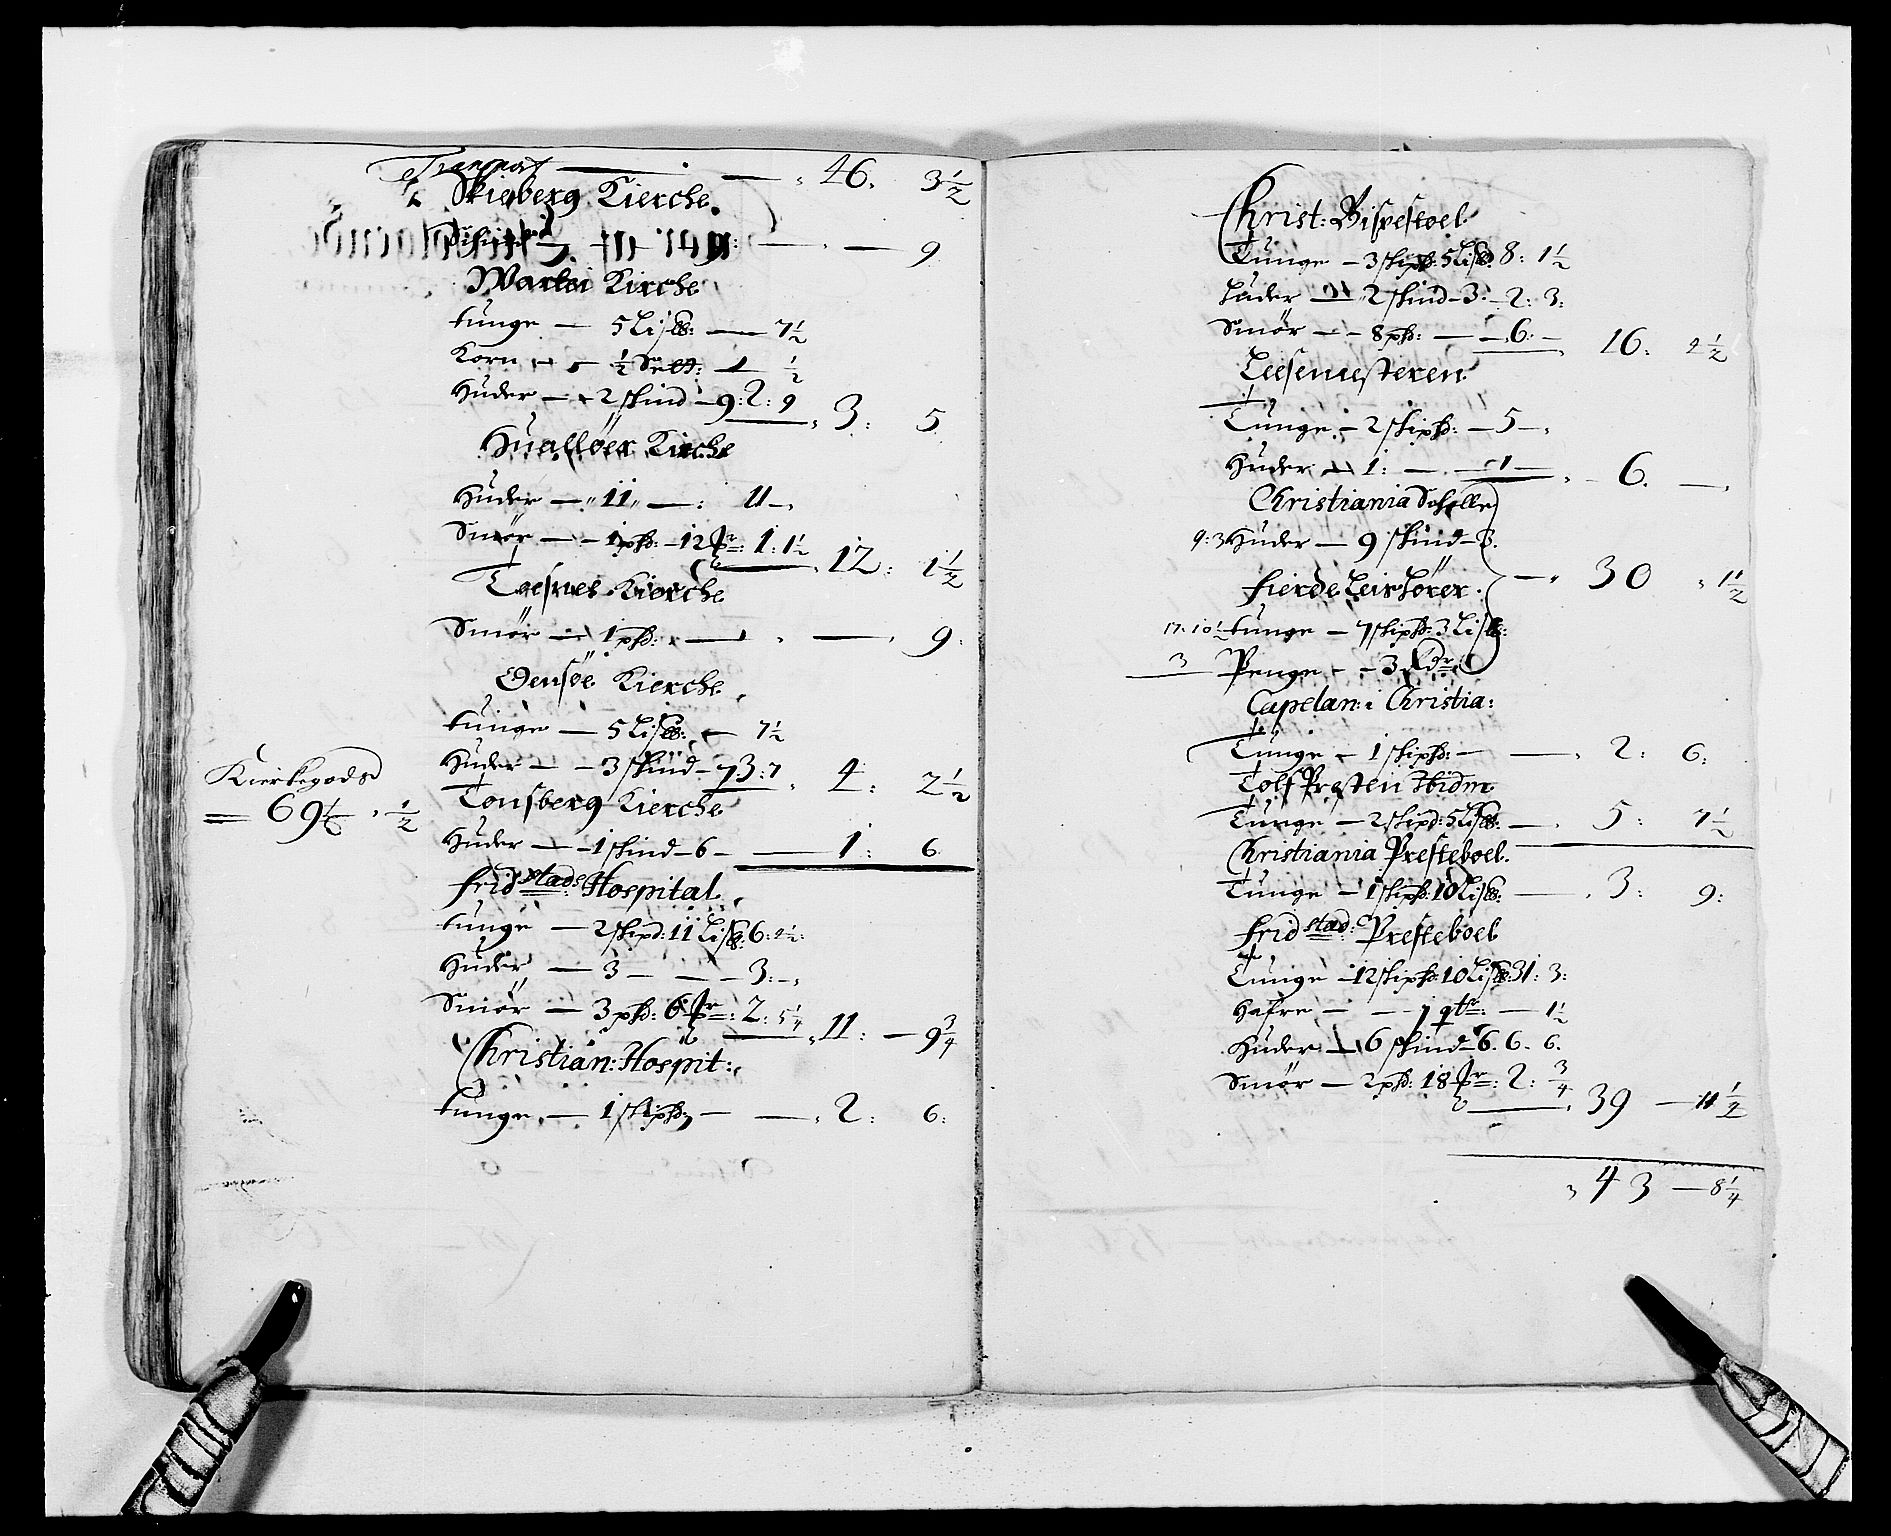 Transport — 46. 3½
Skieberg Kierche.
— 9.
Wartei Kirche
tunge — 5 Lis℔: — 7½
Korn — ½ Sett: — ½
Huder — 2 skind — 9: 2: 9 3: 5
Hualløer Kirche
Huder — 11 — : 11 —
Smør — 1 pd: — 12 1: 1½ 12: 1½
Kierche
Smør — 1 pd: — — 9:
Oensøe Kierche
tunge — 5 Lis℔: — 7½
Huder — 3 skind — 7 3: 7 4: 2½
Tonsberg Kierche
Kierkegods
= 69 ½
Huder — 1 skind — 6 — 1: 6
Fridstads Hospital
tunge — 2 skipd: 11 Lis℔: 6: 4½:
Huder — 3 — — 3: —
Smør — 3 pd: 6 : 2: 5¼ 11: — 9¾
Christian: Hospit:
tunge — 1 skipd: — — 2: 6:
Christ: Bispestoel
Tunge — 3 skipd: 5 Lis℔: 8: 1½
Huder — 2 skind — 3: — 2: 3:
Smør — 8 pd: — 6: — 16: 4½
Leesemesteren
Tunge — 2 skipd: — 5 —
Huder — 1: — 1 — 6. —
Christiania Scholle
9:3 Huder — 9 skind — 3.
fierde Leixhører. — 30 1½
17:10½ tunge — 7 skipd: 3 Lis℔:
3 Penge — 3
Capelan: i Christia:
Tunge — 1 skipd: — — 2: 6:
Tolf Presten
Tunge — 2 skipd: 5 Lis℔: — 5: 7½
Christiania Presteboel.
Tunge — 1 skipd: 10 Lis℔: — 3: 9:
Fridstad: Presteboel
Tunge — 12 skipd: 10 Lis℔: 31: 3:
Hafre — — 1 qtr: — 1½
Huder — 6 skind — 6. 6. 6.
Smør — 2 pd: 18 : 2: ¾ 39 — 11¼
43 — 8¼